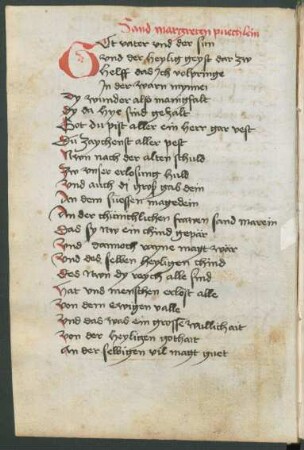 Sand margreten puechlein
Got vater vnd der sun
Vnd der heylig geyst dar zw
Helff das ich volpringe
In der warn mynne
Dy wunder also manigfalt
Dy da hye sind gezalt
Got du pist aller ein herr gar vest
Du zaychenst aller pest
Nwn nach der alten schuld
Zw vnser erlosung huld
Vnd auch di gros gab dein
An dem suessen magedein
An der frawen sand marein
Das sy ny ein chind gepar
Vnd dannoch rayne magt war
Vnd des selben heyligen chind
Des nwn dy reych alle sind
Hat vns menschen erlost alle
Von dem ewigen valle
Vnd das was ein grosse
Von der heyligen gothait
An der selbigen vil magt guet